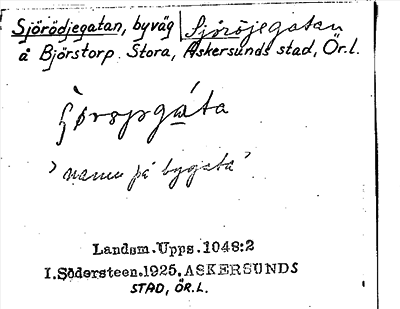 Sjörödjegatan, byväg Sjöröjegatan
å Björstorp Stora, Askersunds stad, Ör.l.
'namn på bygata'
Landsm.Upps.1048:2
I.Södersteen.1925.ASKERSUNDS
STAD, ÖR.L.